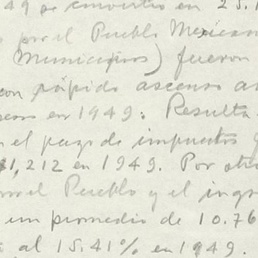 49 se convirtió en 25.1
por el Pueblo Mexicano
Municipios) fueron
con rápido ascenso a
en 1949: Resulta
el pago de impuestos y
$1,212 en 1949. Por otr
Pueblo y el ingr
un promedio de 10.76
al 15.41% en 1949.